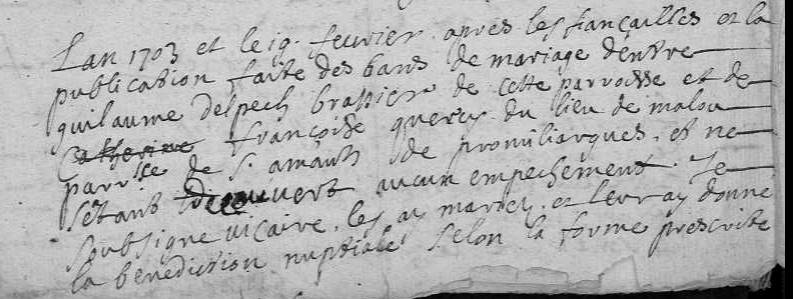 Lan 1703 et le 19 feuvrier apres les fiançailles et la
publication faite des bans de mariage dentre
guilaume delpech brassier de cette parroisse et de
Catherine françoise quercy du lieu de malou
parrsse de St amans de promiliargues, et ne
sétant decouvert aucun empechement. Je
soubsigne vicaire, les ay mariez et leur ay donne
la benediction nuptiale selon la forme prescrite